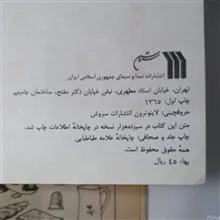 سروش
انتشارات صدا و سیمای جمهوری اسلامی ایران
تهران، خیابان استاد مطهری، نبش خیابان دکتر مفتح، ساختمان جام‌جم
چاپ اول: ۱۳۶۵
حروفچینی: لاینوترون انتشارات سروش
متن این کتاب در سیزده‌هزار نسخه در چاپخانهٔ اطلاعات چاپ شد.
چاپ جلد و صحافی: چاپخانهٔ علامه طباطبایی
همهٔ حقوق محفوظ است.
بها: ٤٥ ریال